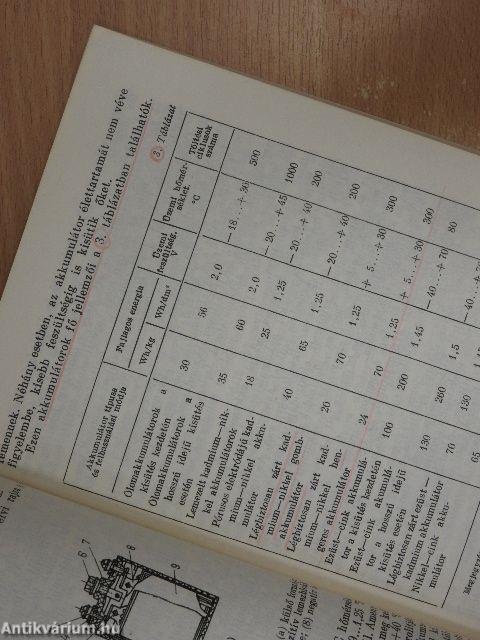 lemennek. Néhány esetben, az akkumulátor élettartamát nem véve
figyelembe, kisebb feszültségig is kisütik őket.
Ezen akkumulátorok fő jellemzői a 3. táblázatban találhatók.
3. Táblázat
Akkumulátor típusa
és felhasználás módja
Fajlagos energia
Wh/kg
Wh/dm³
Üzemi
feszültség,
V
Üzemi hőmér-
séklet,
°C
Töltési
ciklusok
száma
Ólomakkumulátorok a
kisütés kezdetén 30 56 2,0 −18...+30 500
Ólomakkumulátorok a
hosszú idejű kisütés
esetén 35 60 2,0
Lemezelt kadmium—nik-
kel akkumulátorok 18 25 1,25 −20...+45 1000
Pórusos elektródájú kad-
mium—nikkel akku-
mulátor 40 65 1,25 −20...+40 200
Légbiztosan zárt kad-
mium—nikkel gomb-
akkumulátor 20 70 1,25 −20...+40 200
Légbiztosan zárt kad-
mium—nikkel hen-
geres akkumulátor 24 70 1,25 +5...+30 300
Ezüst—cink akkumulá-
tor a kisütés kezdetén 100 200 1,45 +5...+30 300
Ezüst—cink akumulá-
tor a hosszú idejű
kisütés esetén 130 260 1,5 −40...+70 80
Légbiztosan zárt ezüst—
kadmium akkumulátor 70 130
Nikkel—cink akku-
mulátor 65
6
7
8
9
Antikvárium.hu